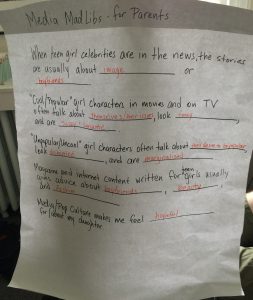 Media MadLibs - for Parents
When teen girl celebrities are in the news, the stories
are usually about image or
boyfriends.
"Cool/Popular" girl characters in movies and on TV
often talk about themselves/boys, look sexy,
and are
"Unpopular/Uncool" girl characters often talk about
look and are marginalized.
Magazine and internet content written for teen girls usually
gives advice about boyfriends, beauty,
and fashion.
Media/Pop Culture makes me feel hopeful
for/about my daughter.